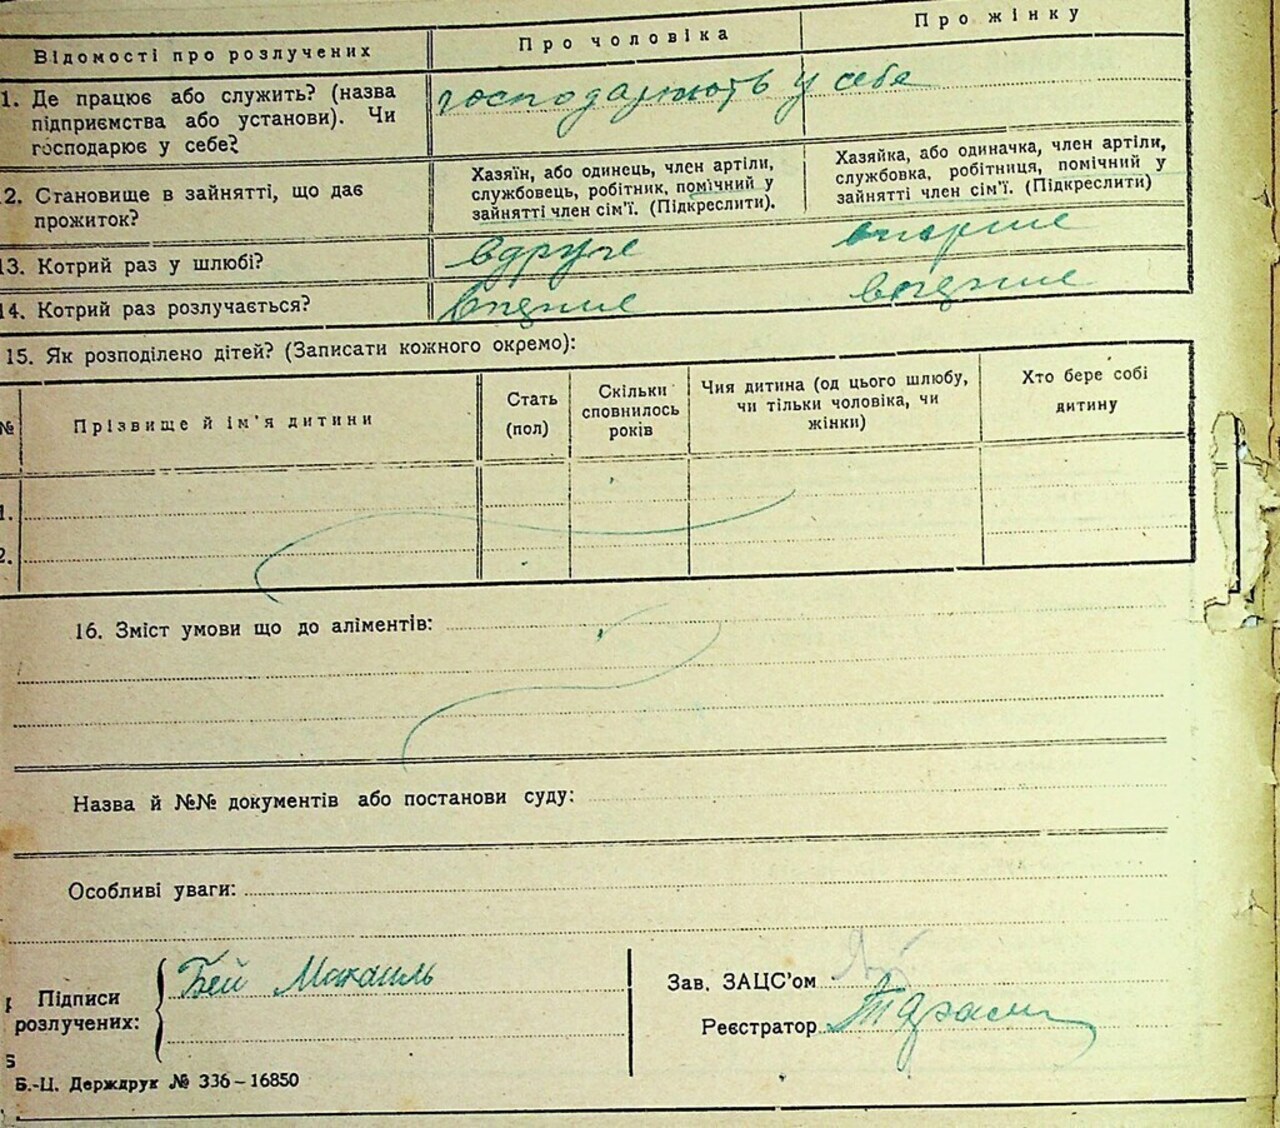 Відомості про розлучених
Про чоловіка
Про жінку
1. Де працює або служить? (назва
підприємства або установи). Чи
господарює у себе?
господарюють у себе
2. Становище в зайнятті, що дає
прожиток?
Хазяїн, або одинець, член артіли,
службовець, робітник, помічний у
зайнятті член сім'ї. (Підкреслити).
Хазяйка, або одиначка, член артіли,
службовка, робітниця, помічний у
зайнятті член сім'ї. (Підкреслити)
13. Котрий раз у шлюбі?
вдруге
вперше
14. Котрий раз розлучається?
вперше
вперше
15. Як розподілено дітей? (Записати кожного окремо):
№
Прізвище й ім'я дитини
Стать
(пол)
Скільки
сповнилось
років
Чия дитина (од цього шлюбу,
чи тільки чоловіка, чи
жінки)
Хто бере собі
дитину
1.
2.
16. Зміст умови що до аліментів:
Назва й №№ документів або постанови суду:
Особливі уваги:
Підписи
розлучених:
Бей Михаиль
Зав. ЗАЦС'ом
Реєстратор
Б.-Ц. Держдрук № 336—16850